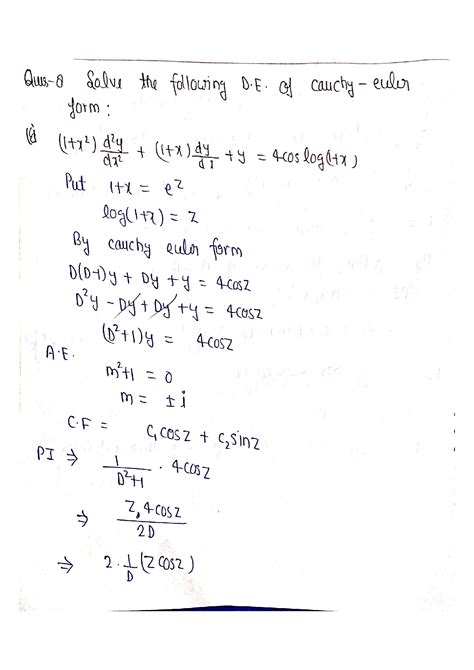 Ques-8 Solve the following D.E. of cauchy-euler
form:
(i) (1+x²) d²y/dx² + (1+x) dy/dx + y = 4cos log(1+x)
Put 1+x = e^z
log(1+x) = z
By cauchy euler form
D(D-1)y + Dy + y = 4cosz
D²y - Dy + Dy + y = 4cosz
(D²+1)y = 4cosz
A.E.
m²+1 = 0
m = ± i
C.F = C₁cosz + C₂sinz
PI ⇒ 1/(D²+1) · 4cosz
⇒ z.4cosz/2D
⇒ 2·1/D (z cosz)